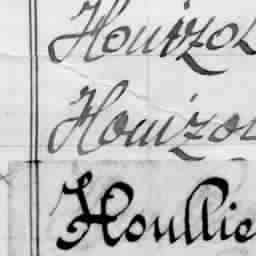 Houizo
Houizo
Houllie